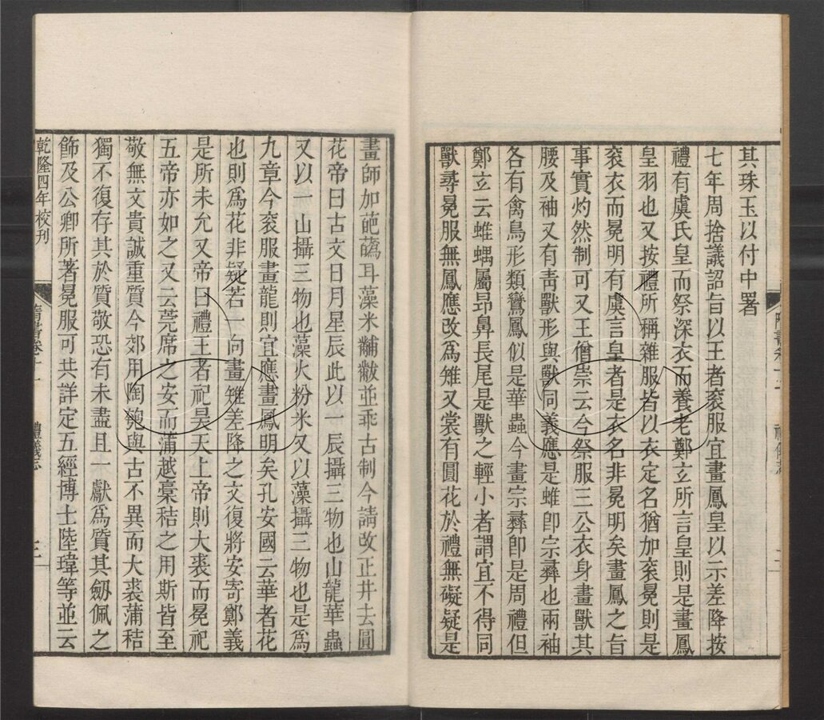 其珠玉以付中署
七年周捨議詔旨以王者衮服宜畫鳳皇以示差降按
禮有虞氏皇而祭深衣而養老鄭玄所言皇則是畫鳳
皇羽也又按禮所稱雜服皆以衣定名猶加衮冕則是
衮衣而冕明有虞言皇者是衣名非冕明矣畫鳳之旨
事實灼然制可又王僧崇云今祭服三公衣身畫獸其
腰及袖又有靑獸形與獸同義應是蜼卽宗彝也兩袖
各有禽鳥形類鸞鳳似是華蟲今畫宗彝卽是周禮但
鄭玄云蜼蝺屬昻鼻長尾是獸之輕小者謂宜不得同
獸尋冕服無鳳應改爲雉又裳有圓花於禮無礙疑是
畫師加葩蘤耳藻米黼黻並乖古制今請改正并去圓
花帝曰古文日月星辰此以一辰攝三物也山龍華蟲
又以一山攝三物也藻火粉米又以藻攝三物也是爲
九章今衮服畫龍則宜應畫鳳明矣孔安國云華者花
也則爲花非疑若一向畫雉差降之文復將安寄鄭義
是所未允又帝曰禮王者祀昊天上帝則大裘而冕祀
五帝亦如之又云莞席之安而蒲越稾秸之用斯皆至
敬無文貴誠重質今郊用陶匏與古不異而大裘蒲秸
獨不復存其於質敬恐有未盡且一獻爲質其劔佩之
飾及公卿所著冕服可共詳定五經博士陸瑋等並云
乾隆四年校刊
隋書卷十一
禮儀志
三